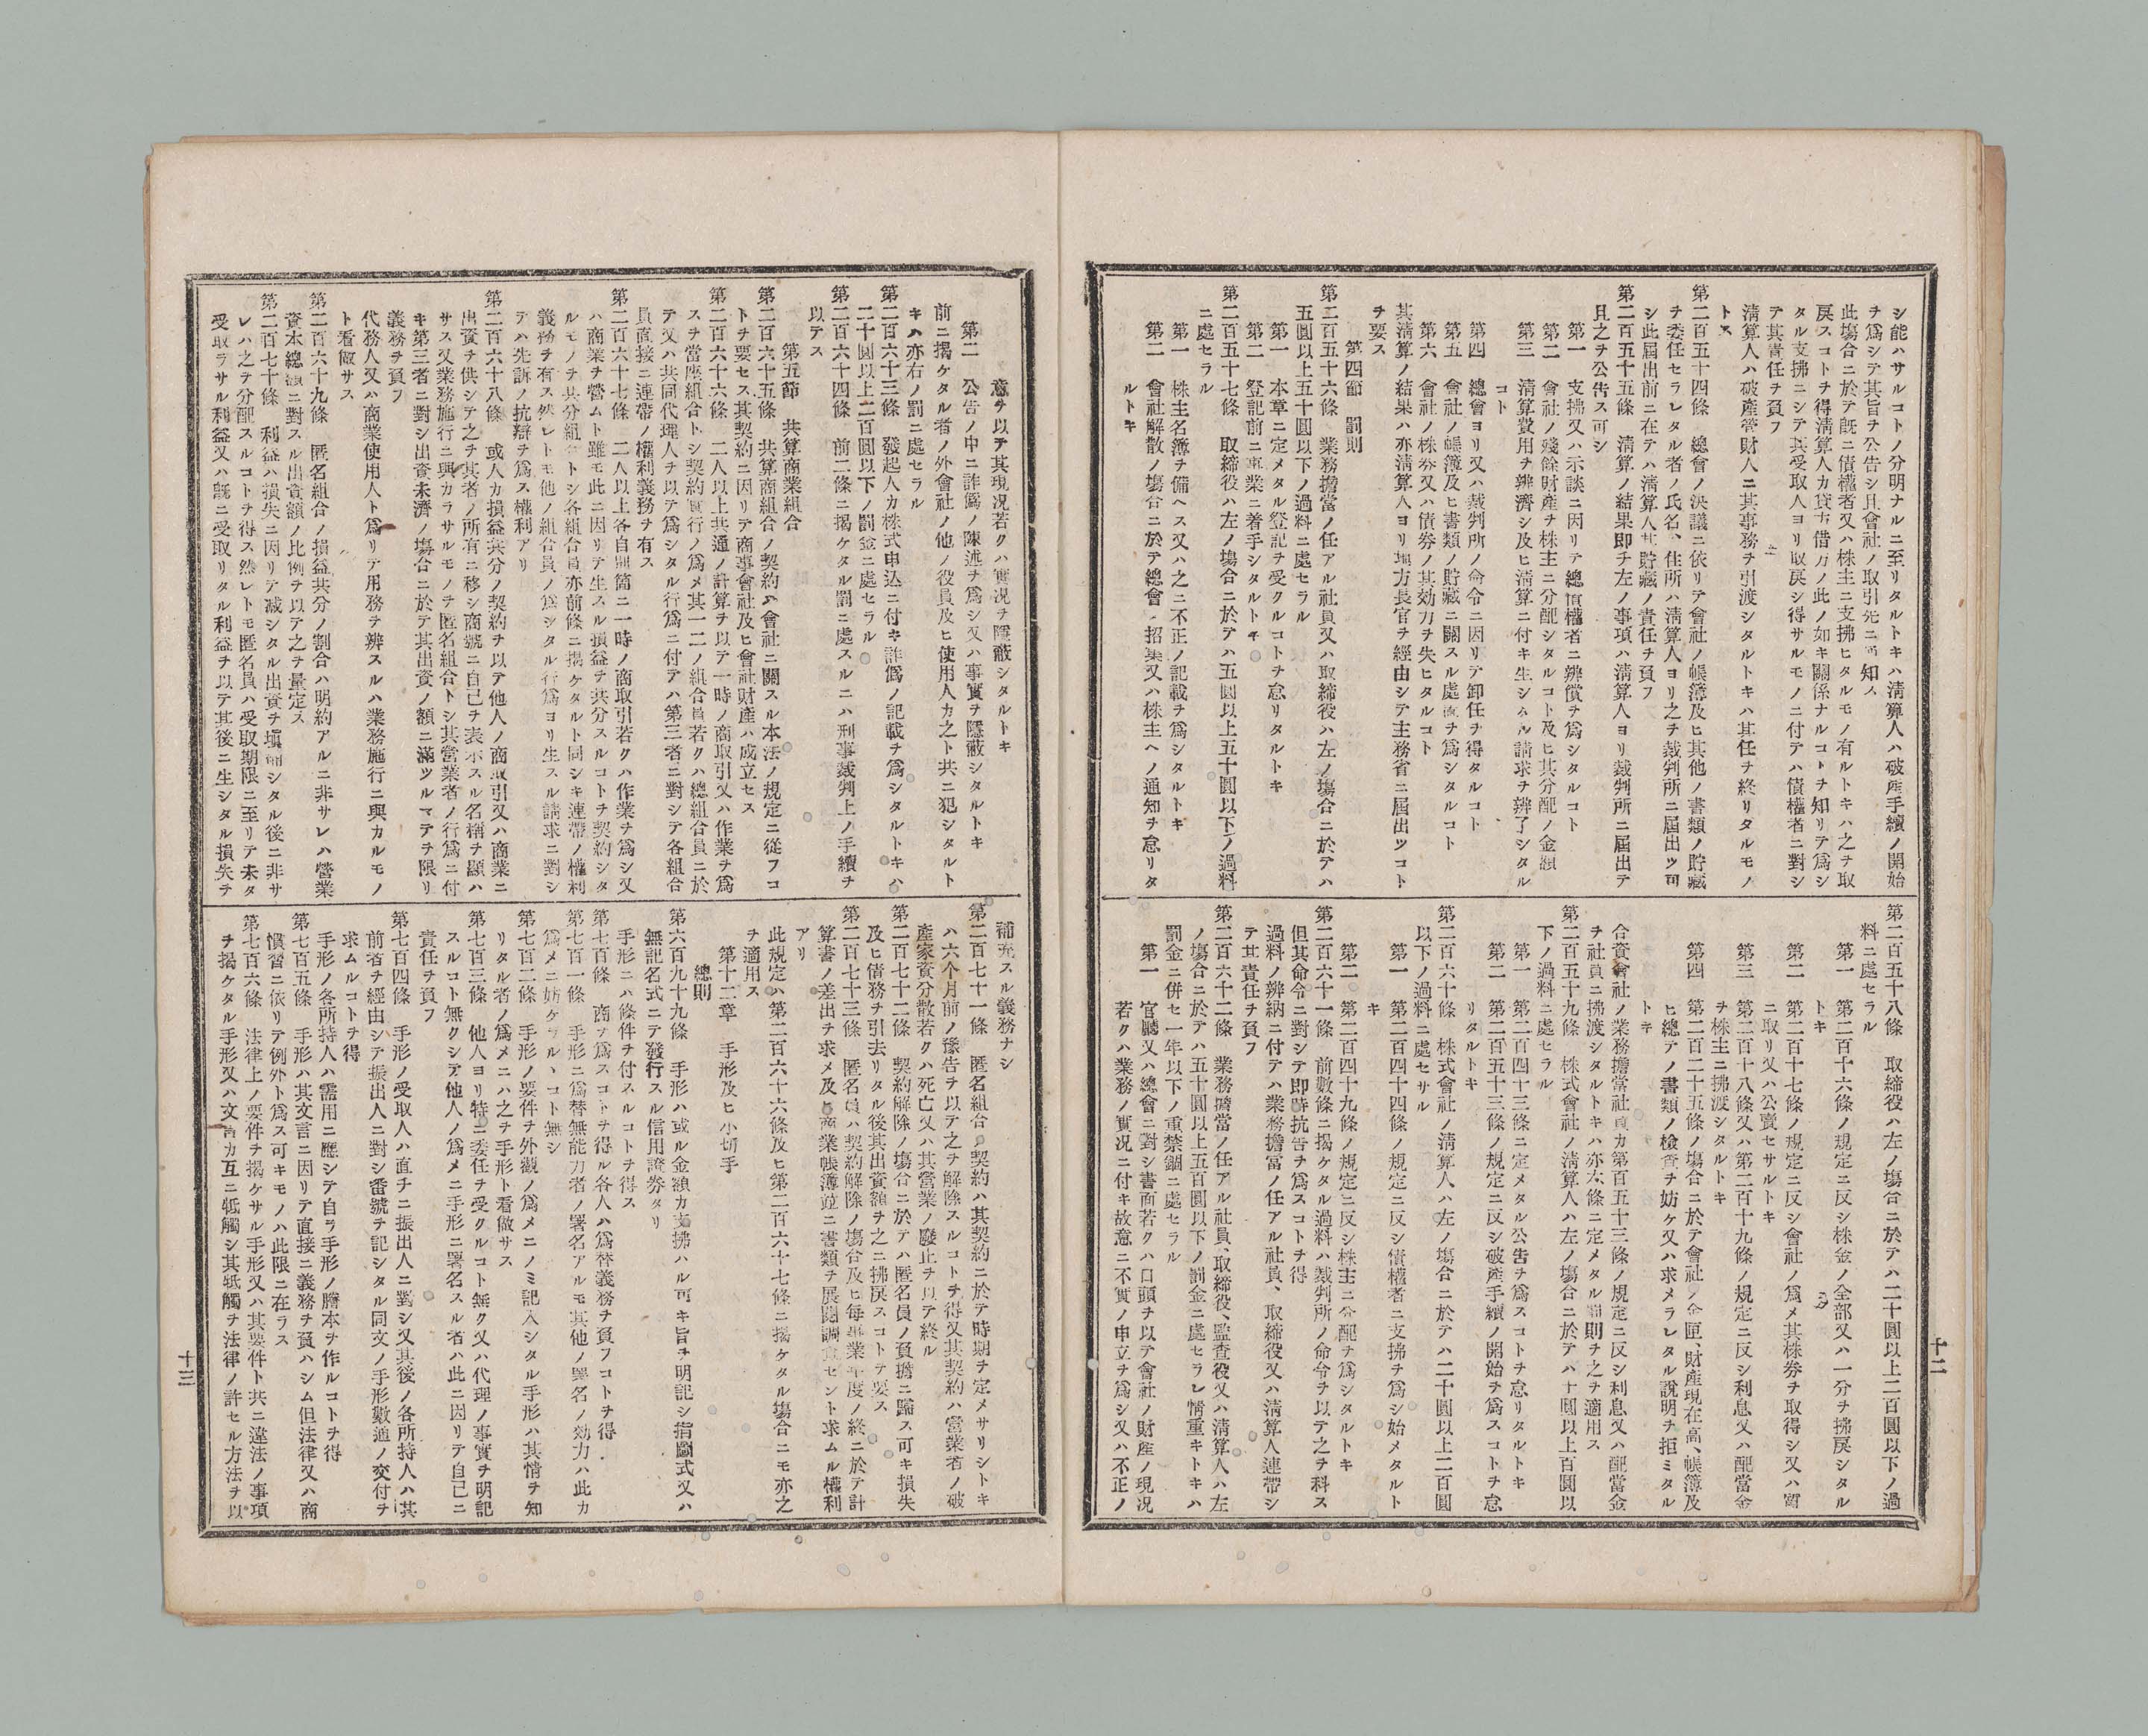 シ能ハサルコトノ分明ナルニ至リタルトキハ淸算人ハ破產手續ノ開始
ヲ爲シテ其旨ヲ公吿シ且會社ノ取引先ニ通知ス
此塲合ニ於テ旣ニ債權者又ハ株主ニ支拂ヒタルモノ有ルトキハ之ヲ取
戾スコトヲ得淸算人カ貸方借方ノ此ノ如キ關係ナルコトヲ知リテ爲シ
タル支拂ニシテ其受取人ヨリ取戾シ得サルモノニ付テハ債權者ニ對シ
テ其責任ヲ負フ
淸算人ハ破產管財人ニ其事務ヲ引渡シタルトキハ其任ヲ終リタルモノ
トス
第二百五十四條　總會ノ決議ニ依リテ會社ノ帳簿及ヒ其他ノ書類ノ貯藏
ヲ委任セラレタル者ノ氏名、住所ハ淸算人ヨリ之ヲ裁判所ニ屆出ツ可
シ此屆出前ニ在テハ淸算人其貯藏ノ責任ヲ負フ
第二百五十五條　淸算ノ結果即チ左ノ事項ハ淸算人ヨリ裁判所ニ屆出テ
且之ヲ公吿ス可シ
第一　支拂又ハ示談ニ因リテ總債權者ニ辨償ヲ爲シタルコト
第二　會社ノ殘餘財產ヲ株主ニ分配シタルコト及ヒ其分配ノ金額
第三　淸算費用ヲ辨濟シ及ヒ淸算ニ付キ生シタル請求ヲ辨了シタル
コト
第四　總會ヨリ又ハ裁判所ノ命令ニ因リテ卸任ヲ得タルコト
第五　會社ノ帳簿及ヒ書類ノ貯藏ニ關スル處置ヲ爲シタルコト
第六　會社ノ株券又ハ債券ノ其効力ヲ失ヒタルコト
其淸算ノ結果ハ亦淸算人ヨリ地方長官ヲ經由シテ主務省ニ屆出ツコト
ヲ要ス
第四節　罰則
第二百五十六條　業務擔當ノ任アル社員又ハ取締役ハ左ノ塲合ニ於テハ
五圓以上五十圓以下ノ過料ニ處セラル
第一　本章ニ定メタル登記ヲ受クルコトヲ怠リタルトキ
第二　登記前ニ事業ニ着手シタルトキ
第二百五十七條　取締役ハ左ノ塲合ニ於テハ五圓以上五十圓以下ノ過料
ニ處セラル
第一　株主名簿ヲ備ヘス又ハ之ニ不正ノ記載ヲ爲シタルトキ
第二　會社解散ノ塲合ニ於テ總會ノ招集又ハ株主ヘノ通知ヲ怠リタ
ルトキ
第二百五十八條　取締役ハ左ノ塲合ニ於テハ二十圓以上二百圓以下ノ過
料ニ處セラル
第一　第二百十六條ノ規定ニ反シ株金ノ全部又ハ一分ヲ拂戾シタル
トキ
第二　第二百十七條ノ規定ニ反シ會社ノ爲メ其株券ヲ取得シ又ハ質
ニ取リ又ハ公賣セサルトキ
第三　第二百十八條又ハ第二百十九條ノ規定ニ反シ利息又ハ配當金
ヲ株主ニ拂渡シタルトキ
第四　第二百二十五條ノ塲合ニ於テ會社ノ金匣、財產現在高、帳簿及
ヒ總テノ書類ノ檢査ヲ妨ケ又ハ求メラレタル說明ヲ拒ミタル
トキ
合資會社ノ業務擔當社員カ第百五十三條ノ規定ニ反シ利息又ハ配當金
ヲ社員ニ拂渡シタルトキハ亦本條ニ定メタル罰則ヲ之ヲ適用ス
第二百五十九條　株式會社ノ淸算人ハ左ノ塲合ニ於テハ十圓以上百圓以
下ノ過料ニ處セラル
第一　第二百四十三條ニ定メタル公吿ヲ爲スコトヲ怠リタルトキ
第二　第二百五十三條ノ規定ニ反シ破產手續ノ開始ヲ爲スコトヲ怠
リタルトキ
第二百六十條　株式會社ノ淸算人ハ左ノ塲合ニ於テハ二十圓以上二百圓
以下ノ過料ニ處セサル
第一　第二百四十四條ノ規定ニ反シ債權者ニ支拂ヲ爲シ始メタルト
キ
第二　第二百四十九條ノ規定ニ反シ株主ニ分配ヲ爲シタルトキ
第二百六十一條　前數條ニ揭ケタル過料ハ裁判所ノ命令ヲ以テ之ヲ科ス
但其命令ニ對シテ即時抗吿ヲ爲スコトヲ得
過料ノ辨納ニ付テハ業務擔當ノ任アル社員、取締役又ハ淸算人連帶シ
テ其責任ヲ負フ
第二百六十二條　業務擔當ノ任アル社員、取締役、監査役又ハ淸算人ハ左
ノ塲合ニ於テハ五十圓以上五百圓以下ノ罰金ニ處セラレ情重キトキハ
罰金ニ併セ一年以下ノ重禁錮ニ處セラル
第一　官廳又ハ總會ニ對シ書面若クハ口頭ヲ以テ會社ノ財產ノ現況
若クハ業務ノ實況ニ付キ故意ニ不實ノ申立ヲ爲シ又ハ不正ノ
十二
意ヲ以テ其現況若クハ實况ヲ隱蔽シタルトキ
第二　公吿ノ中ニ詐僞ノ陳述ヲ爲シ又ハ事實ヲ隱蔽シタルトキ
前ニ揭ケタル者ノ外會社ノ他ノ役員及ヒ使用人カ之ト共ニ犯シタルト
キハ亦右ノ罰ニ處セラル
第二百六十三條　發起人カ株式申込ニ付キ詐僞ノ記載ヲ爲シタルトキハ
二十圓以上二百圓以下ノ罰金ニ處セラル
第二百六十四條　前二條ニ揭ケタル罰ニ處スルニハ刑事裁判上ノ手續ヲ
以テス
第五節　共算商業組合
第二百六十五條　共算商組合ノ契約ハ會社ニ關スル本法ノ規定ニ從フコ
トヲ要セス其契約ニ因リテ商事會社及ヒ會社財產ハ成立セス
第二百六十六條　二人以上共通ノ計算ヲ以テ一時ノ商取引又ハ作業ヲ爲
スヲ當座組合トシ契約實行ノ爲メ其一二ノ組合員若クハ總組合員ニ於
テ又ハ共同代理人ヲ以テ爲シタル行爲ニ付テハ第三者ニ對シテ各組合
員直接ニ連帶ノ權利義務ヲ有ス
第二百六十七條　二人以上各自別箇ニ一時ノ商取引若クハ作業ヲ爲シ又
ハ商業ヲ營ムト雖モ此ニ因リテ生スル損益ヲ共分スルコトヲ契約シタ
ルモノヲ共分組合トシ各組合員亦前條ニ揭ケタルト同シキ連帶ノ權利
義務ヲ有ス然レトモ他ノ組合員ノ爲シタル行爲ヨリ生スル請求ニ對シ
テハ先訴ノ抗辯ヲ爲ス權利アリ
第二百六十八條　或人カ損益共分ノ契約ヲ以テ他人ノ商取引又ハ商業ニ
出資ヲ供シテ之ヲ其者ノ所有ニ移シ商號ニ自己ヲ表示スル名稱ヲ顯ハ
サス又業務施行ニ與カラサルモノヲ匿名組合トシ其營業者ノ行爲ニ付
キ第三者ニ對シ出資未濟ノ塲合ニ於テ其出資ノ額ニ滿ツルマテヲ限リ
義務ヲ負フ
代務人又ハ商業使用人ト爲リテ用務ヲ辨スルハ業務施行ニ與カルモノ
ト看做サス
第二百六十九條　匿名組合ノ損益共分ノ割合ハ明約アルニ非サレハ營業
資本總額ニ對スル出資額ノ比例ヲ以テ之ヲ量定ス
第二百七十條　利益ハ損失ニ因リテ减シタル出資ヲ塡補シタル後ニ非サ
レハ之ヲ分配スルコトヲ得ス然レトモ匿名員ハ受取期限ニ至リテ未タ
受取ラサル利益又ハ旣ニ受取リタル利益ヲ以テ其後ニ生シタル損失ヲ
補充スル義務ナシ
第二百七十一條　匿名組合ノ契約ハ其契約ニ於テ時期ヲ定メサリシトキ
ハ六个月前ノ豫吿ヲ以テ之ヲ解除スルコトヲ得又其契約ハ當業者ノ破
產家資分散若クハ死亡又ハ其營業ノ廢止ヲ以テ終ル
第二百七十二條　契約解除ノ塲合ニ於テハ匿名員ノ負擔ニ歸ス可キ損失
及ヒ債務ヲ引去リタル後其出資額ヲ之ニ拂戾スコトヲ要ス
第二百七十三條　匿名員ハ契約解除ノ塲合及ヒ每事業年度ノ終ニ於テ計
算書ノ差出ヲ求メ及ヒ商業帳簿竝ニ書類ヲ展閱調査セント求ムル權利
アリ
此規定ハ第二百六十六條及ヒ第二百六十七條ニ揭ケタル塲合ニモ亦之
ヲ適用ス
第十二章　手形及ヒ小切手
總則
第六百九十九條　手形ハ或ル金額カ支拂ハル可キ旨ヲ明記シ指圖式又ハ
無記名式ニテ發行スル信用證券タリ
手形ニハ條件ヲ付スルコトヲ得ス
第七百條　商ヲ爲スコトヲ得ル各人ハ爲替義務ヲ負フコトヲ得
第七百一條　手形ニ爲替無能力者ノ署名アルモ其他ノ署名ノ効力ハ此カ
爲メニ妨ケラルヽコト無シ
第七百二條　手形ノ要件ヲ外觀ノ爲メニノミ記入シタル手形ハ其情ヲ知
リタル者ノ爲メニハ之ヲ手形ト看做サス
第七百三條　他人ヨリ特ニ委任ヲ受クルコト無ク又ハ代理ノ事實ヲ明記
スルコト無クシテ他人ノ爲メニ手形ニ署名スル者ハ此ニ因リテ自己ニ
責任ヲ負フ
第七百四條　手形ノ受取人ハ直チニ振出人ニ對シ又其後ノ各所持人ハ其
前者ヲ經由シテ振出人ニ對シ番號ヲ記シタル同文ノ手形數通ノ交付ヲ
求ムルコトヲ得
手形ノ各所持人ハ需用ニ應シテ自ラ手形ノ謄本ヲ作ルコトヲ得
第七百五條　手形ハ其文言ニ因リテ直接ニ義務ヲ負ハシム但法律又ハ商
慣習ニ依リテ例外ト爲ス可キモノハ此限ニ在ラス
第七百六條　法律上ノ要件ヲ揭ケサル手形又ハ其要件ト共ニ違法ノ事項
ヲ揭ケタル手形又ハ文言カ互ニ牴觸シ其牴觸ヲ法律ノ許セル方法ヲ以
十三